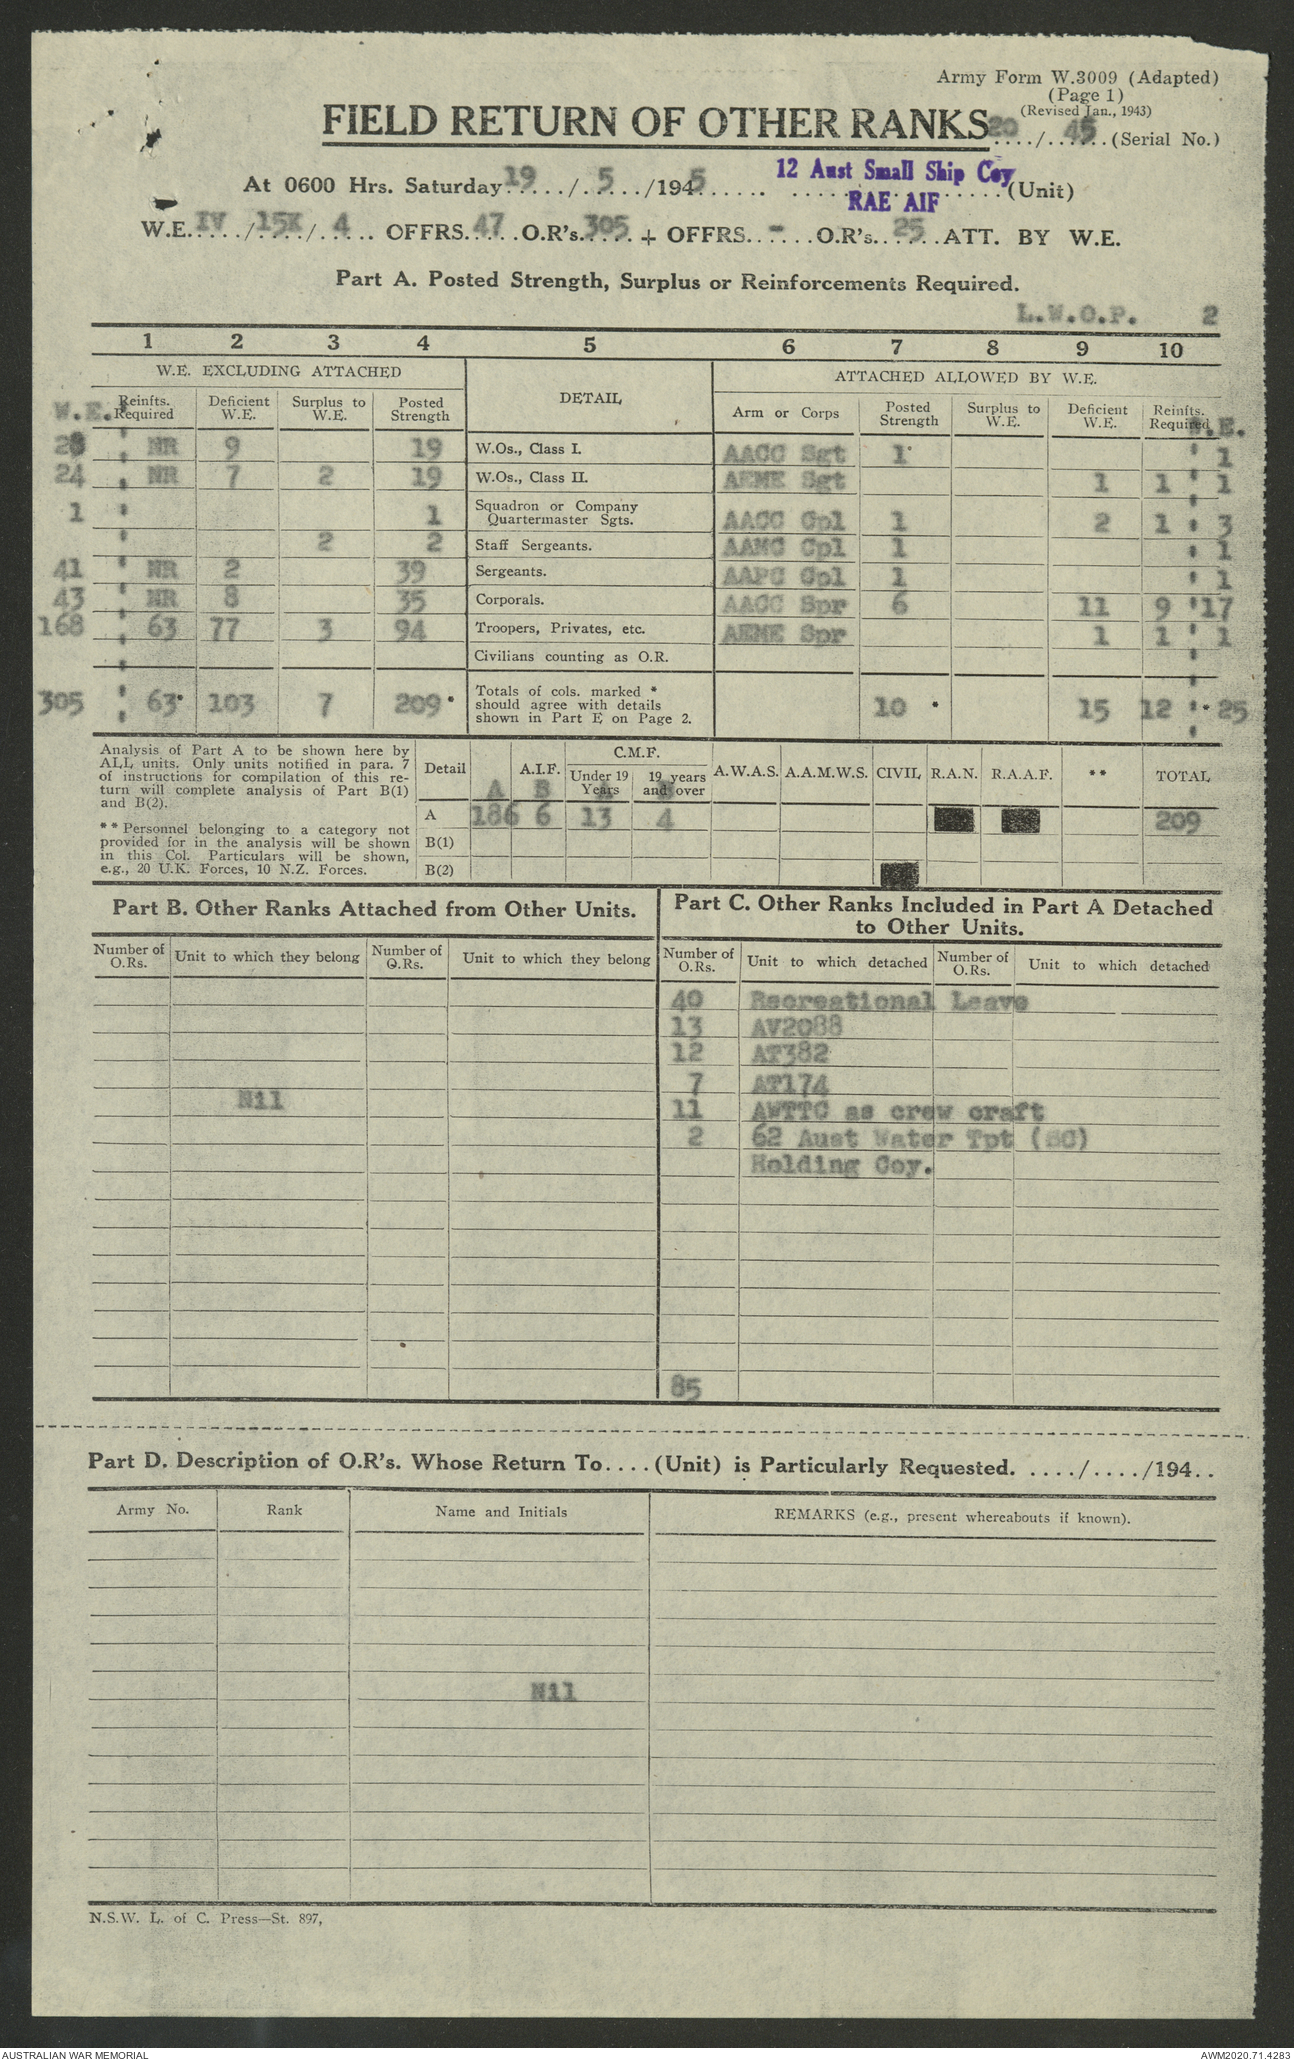 Army Form W.3009 (Adapted)
(Page 1)
(Revised Jan., 1943)
FIELD RETURN OF OTHER RANKS 20/45 (Serial No.)
At 0600 Hrs. Saturday 19/5/1945 12 Aust Small Ship Coy (Unit)
RAE AIF
W.E. IV/15K/4 OFFRS. 47 O.R's. 305 + OFFRS. - O.R's. 25 ATT. BY W.E.
Part A. Posted Strength, Surplus or Reinforcements Required.
L.W.O.P. 2
1 2 3 4 5 6 7 8 9 10
W.E. EXCLUDING ATTACHED DETAIL ATTACHED ALLOWED BY W.E.
W.E. Reinfts. Required Deficient W.E. Surplus to W.E. Posted Strength Arm or Corps Posted Strength Surplus to W.E. Deficient W.E. Reinfts. Required W.E.
28 NR 9 19 W.Os., Class I. AACC Sgt 1 1
24 NR 7 2 19 W.Os., Class II. AEME Sgt 1 1 1
1 1 Squadron or Company Quartermaster Sgts. AACC Cpl 1 2 1 3
2 2 Staff Sergeants. AAMC Cpl 1 1
41 NR 2 39 Sergeants. AAPC Cpl 1 1
43 NR 8 35 Corporals. AACC Spr 6 11 9 17
168 63 77 3 94 Troopers, Privates, etc. AEME Spr 1 1 1
Civilians counting as O.R.
305 63* 103 7 209* Totals of cols. marked * should agree with details shown in Part E on Page 2. 10 * 15 12 * 25
Analysis of Part A to be shown here by
ALL units. Only units notified in para. 7
of instructions for compilation of this re-
turn will complete analysis of Part B(1)
and B(2).
** Personnel belonging to a category not
provided for in the analysis will be shown
in this Col. Particulars will be shown,
e.g., 20 U.K. Forces, 10 N.Z. Forces.
Detail A.I.F. C.M.F. A.W.A.S. A.A.M.W.S. CIVIL R.A.N. R.A.A.F. ** TOTAL
Under 19 Years 19 years and over
A B A B
A 186 6 13 4 209
B(1)
B(2)
Part B. Other Ranks Attached from Other Units.
Number of O.Rs. Unit to which they belong Number of O.Rs. Unit to which they belong
Nil
Part C. Other Ranks Included in Part A Detached
to Other Units.
Number of O.Rs. Unit to which detached Number of O.Rs. Unit to which detached
40 Recreational Leave
13 AV2088
12 AT382
7 AT174
11 AWTTC as crew craft
2 62 Aust Water Tpt (SC)
Holding Coy.
85
Part D. Description of O.R's. Whose Return To.... (Unit) is Particularly Requested. ..../..../194..
Army No. Rank Name and Initials REMARKS (e.g., present whereabouts if known).
Nil
N.S.W. L. of C. Press—St. 897,
AUSTRALIAN WAR MEMORIAL AWM2020.71.4283